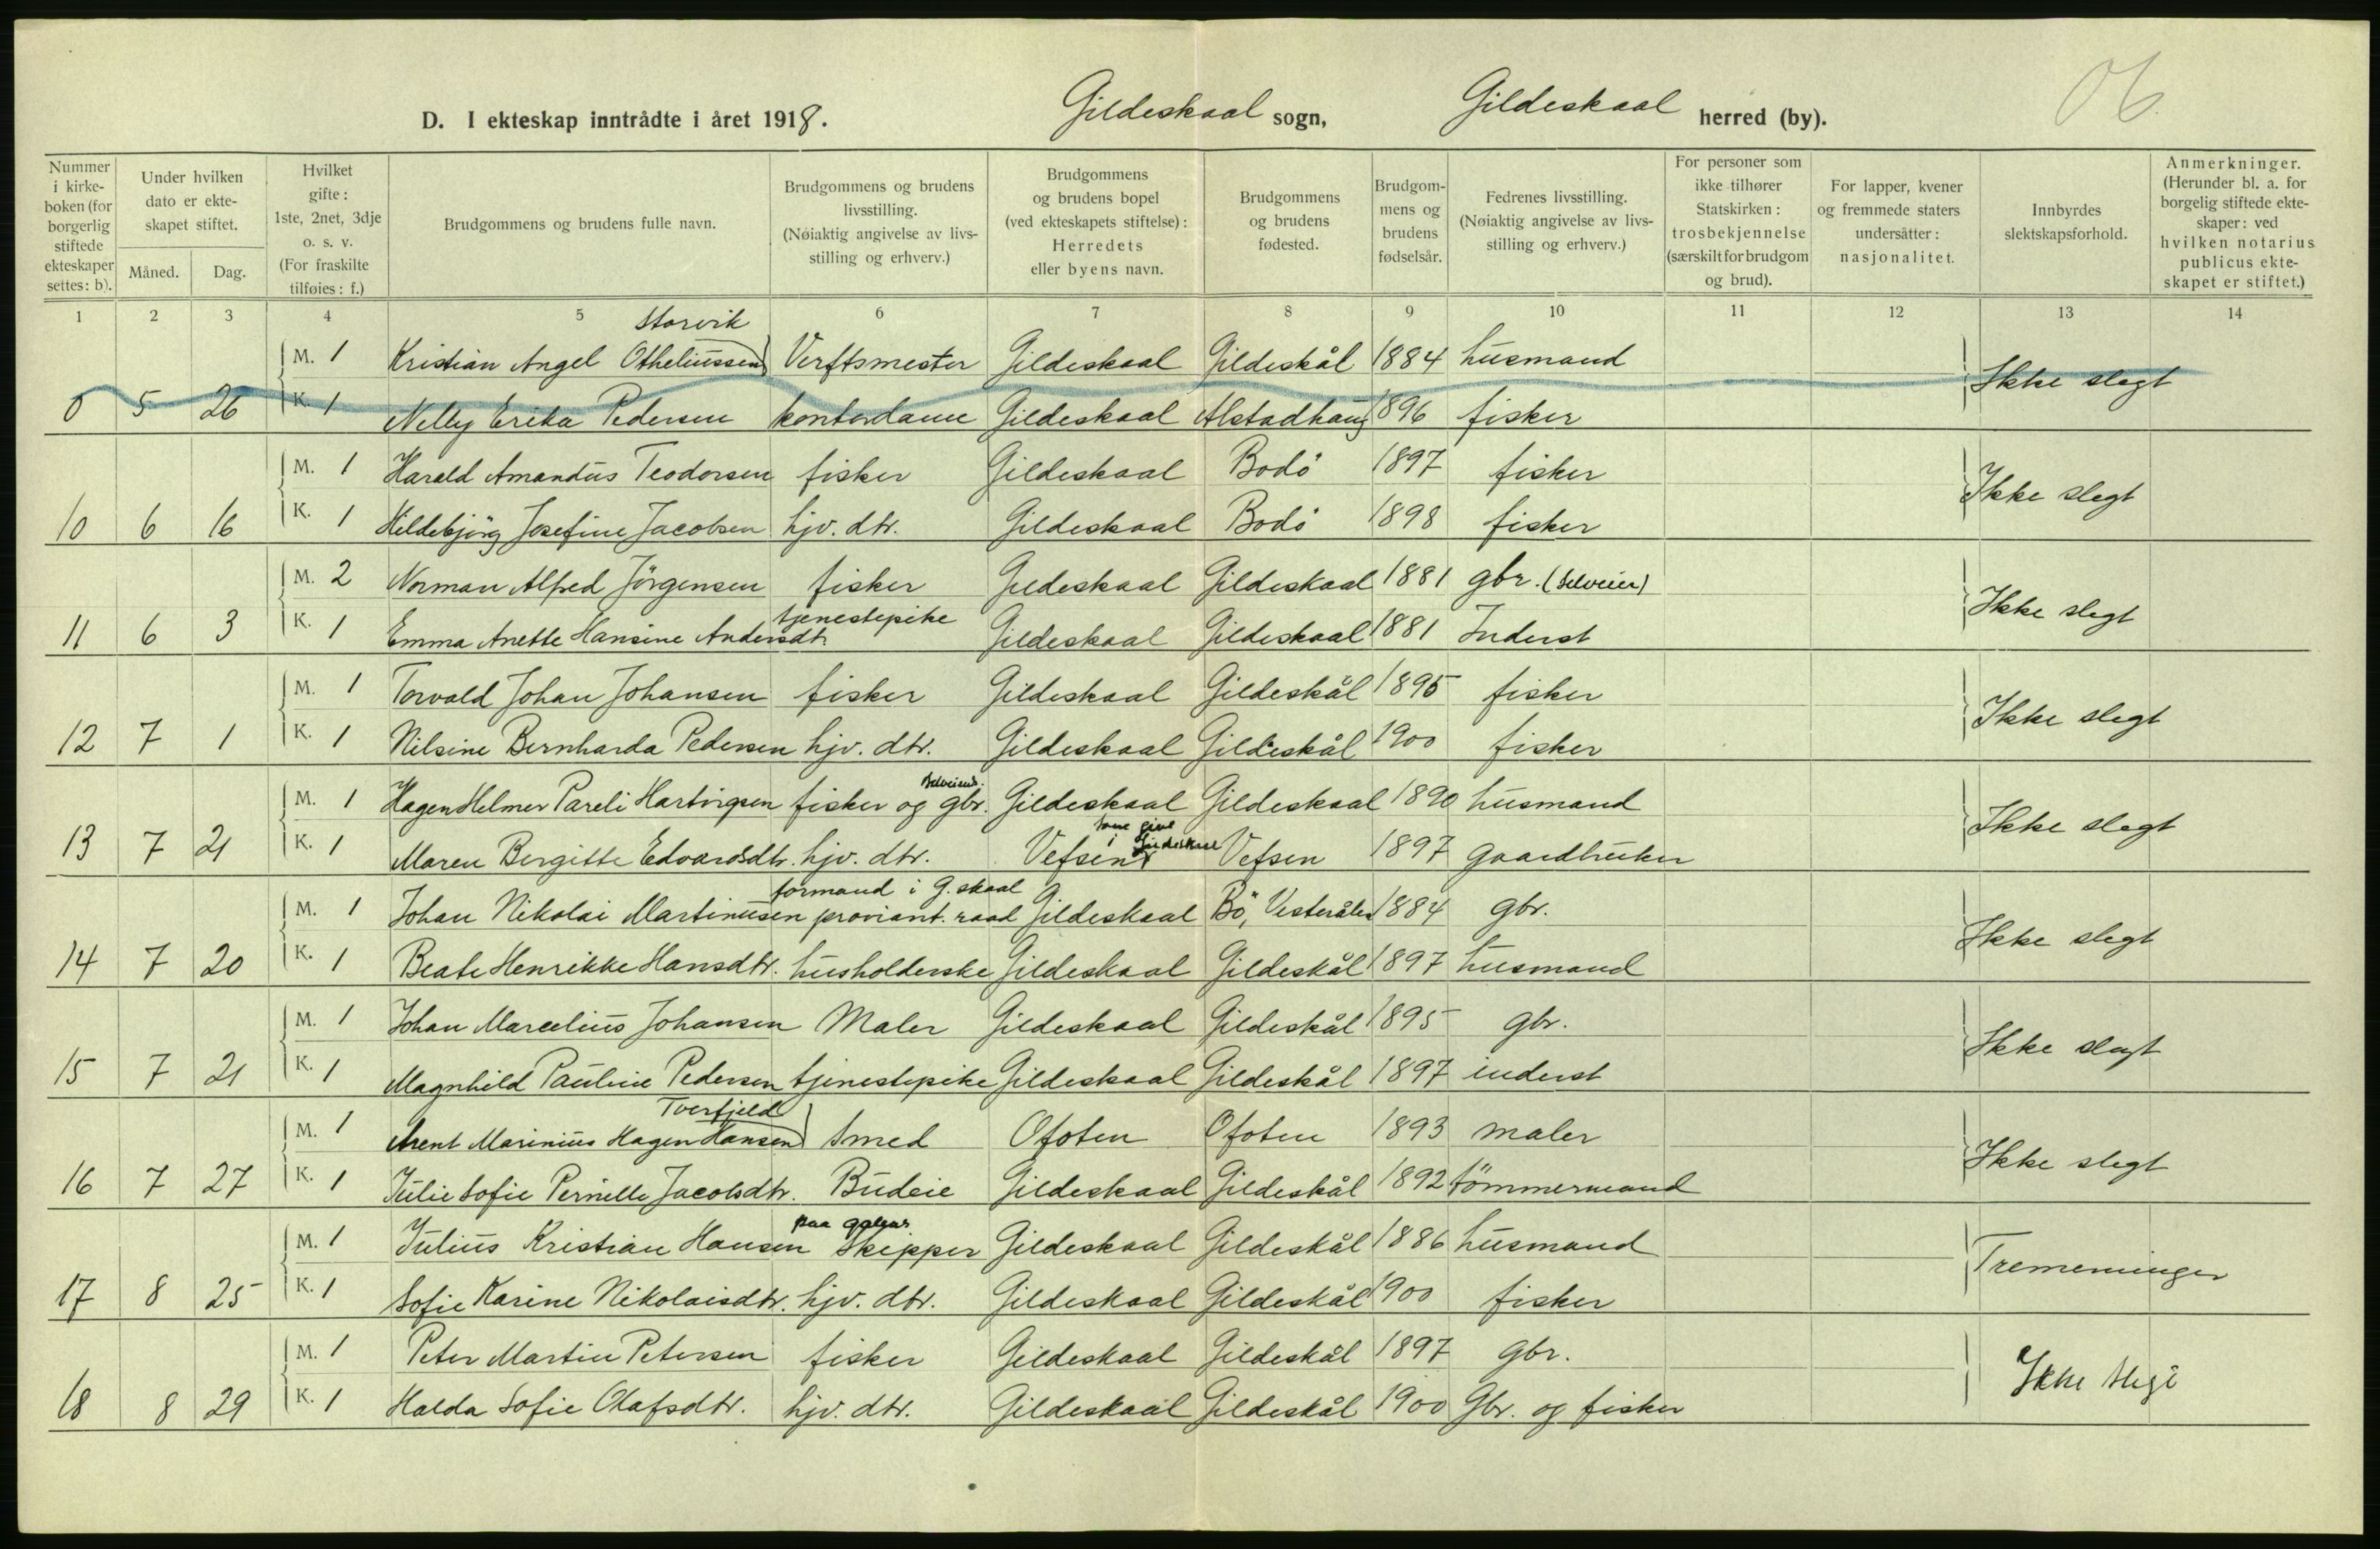 D. I ekteskap inntrådte i året 1918. Gildeskaal sogn, Gildeskaal herred (by).
Nummer i kirkeboken (for borgerlig stiftede ekteskaper settes: b).
Under hvilken dato er ekteskapet stiftet.
Måned. Dag.
Hvilket gifte: 1ste, 2net, 3dje o. s. v. (For fraskilte tilføies: f.)
Brudgommens og brudens fulle navn.
Brudgommens og brudens livsstilling. (Nøiaktig angivelse av livsstilling og erhverv.)
Brudgommens og brudens bopel (ved ekteskapets stiftelse): Herredets eller byens navn.
Brudgommens og brudens fødested.
Brudgommens og brudens fødselsår.
Fedrenes livsstilling. (Nøiaktig angivelse av livsstilling og erhverv.)
For personer som ikke tilhører Statskirken: trosbekjennelse (særskilt for brudgom og brud).
For lapper, kvener og fremmede staters undersåtter: nasjonalitet.
Innbyrdes slektskapsforhold.
Anmerkninger. (Herunder bl. a. for borgelig stiftede ekteskaper: ved hvilken notarius publicus ekteskapet er stiftet.)
1 2 3 4 5 6 7 8 9 10 11 12 13 14
Storvik
M. 1 Kristian Angel Otheliussen Verftsmester Gildeskaal Gildeskål 1884 husmand
Ikke slegt
0 5 26 K. 1 Nelly Erika Pedersen kontordame Gildeskaal Alstadhaug 1896 fisker
M. 1 Harald Amandus Teodorsen fisker Gildeskaal Bodö 1897 fisker
Ikke slegt
10 6 16 K. 1 Hildebjörg Josefine Jacobsen hjv. dtr. Gildeskaal Bodö 1898 fisker
M. 2 Norman Alfred Jörgensen fisker Gildeskaal Gildeskaal 1881 gbr. (selveier)
Ikke slegt
11 6 3 K. 1 Emma Anette Hansine Andersdtr. tjenestepike Gildeskaal Gildeskaal 1881 Inderst
M. 1 Torvald Johan Johansen fisker Gildeskaal Gildeskål 1895 fisker
Ikke slegt
12 7 1 K. 1 Nilsine Bernharda Pedersen hjv. dtr. Gildeskaal Gildeskål 1900 fisker
M. 1 Hagen Helmer Pareli Hartvigsen fisker og gbr. Gildeskaal Gildeskaal 1890 husmand
Ikke slegt
13 7 21 K. 1 Maren Bergitte Edvardsdtr. hjv. dtr. Vefsen Vefsen 1897 gaardbruker
formand i G.skaal
M. 1 Johan Nikolai Martinusen proviant. raad Gildeskaal Bö, Vesterålen 1884 gbr.
Ikke slegt
14 7 20 K. 1 Beate Henrikke Hansdtr. husholderske Gildeskaal Gildeskål 1897 husmand
M. 1 Johan Marcelius Johansen Maler Gildeskaal Gildeskål 1895 gbr.
Ikke slegt
15 7 21 K. 1 Magnhild Pauline Pedersen tjenestepike Gildeskaal Gildeskål 1897 inderst
Tverfjeld
M. 1 Arent Marinius Hagen Hansen Smed Ofoten Ofoten 1893 maler
Ikke slegt
16 7 27 K. 1 Julie Sofie Pernille Jacobsdtr. Budeie Gildeskaal Gildeskål 1892 tömmermand
paa galeas
M. 1 Julius Kristian Hansen Skipper Gildeskaal Gildeskål 1886 husmand
Tremeninger
17 8 25 K. 1 Sofie Karine Nikolaisdtr. hjv. dtr. Gildeskaal Gildeskål 1900 fisker
M. 1 Peter Martin Petersen fisker Gildeskaal Gildeskål 1897 gbr.
Ikke slegt
18 8 29 K. 1 Halda Sofie Olafsdtr. hjv. dtr. Gildeskaal Gildeskål 1900 Gbr. og fisker